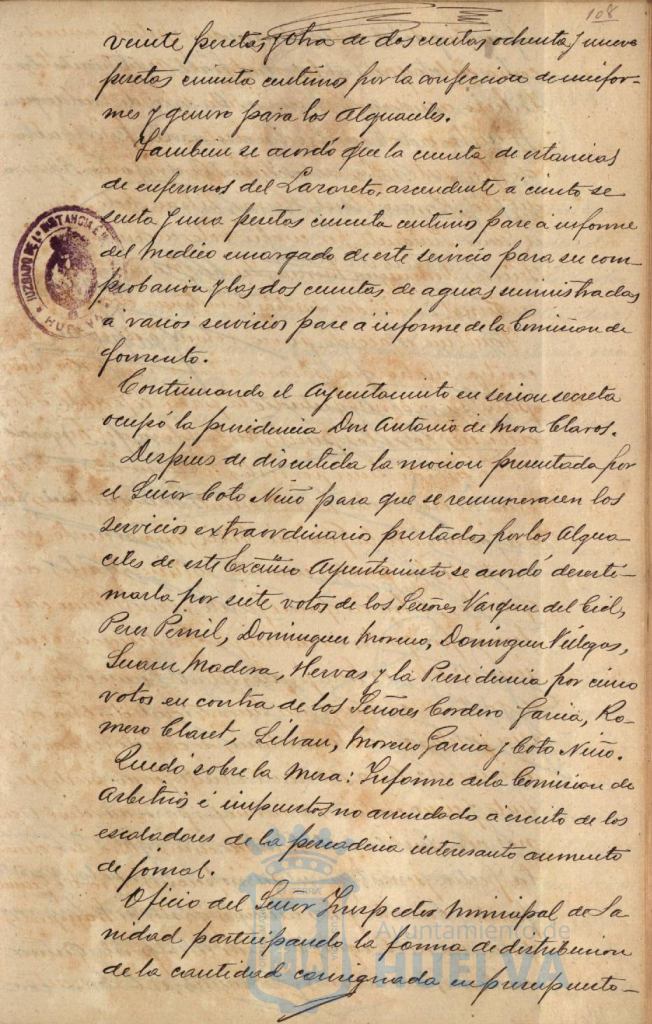 108
veinte pesetas, y otra de doscientas ochenta y nueve
pesetas cincuenta centimos por la confeccion de unifor-
mes y genero para los Alguaciles.
Tambien se acordó que la cuenta de estancias
de enfermos del Lazareto, ascendente á ciento se
senta y una pesetas cincuenta centimos pase á informe
del medico encargado de este servicio para su com
probacion y las dos cuentas de aguas suministradas
á varios servicios pase á informe de la Comision de
fomento.
Continuando el Ayuntamiento en sesion secreta
ocupó la presidencia Don Antonio de Mora Claros.
Despues de discutida la mocion presentada por
el Señor Coto Niño para que se remunerasen los
servicios extraordinarios prestados por los Algua-
ciles de este Excmo Ayuntamiento se acordó desesti-
marla por siete votos de los Señores Vazquez del Cid,
Perez Pernil, Dominguez Moreno, Dominguez Villegas,
Suarez Madera, Hervas y la Presidencia por cinco
votos en contra de los Señores Cordero Garcia, Ro-
mero Claret, Silvan, Moreno Garcia y Coto Niño.
Quedó sobre la Mesa: Informe de la Comision de
Arbitrios é impuestos no arrendado á escrito de los
escaladores de la pescaderia interesando aumento
de jornal.
Oficio del Señor Inspector Municipal de Sa
nidad participando la forma de distribucion
de la cantidad consignada en presupuesto-
JUZGADO DE 1ª INSTANCIA E
HUELVA
Ayuntamiento de
HUELVA